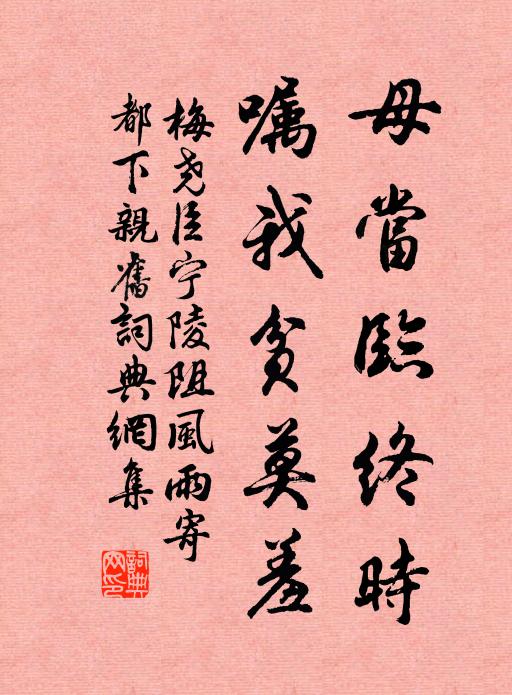 母當臨終時
嘱我貧莫羞
梅尧臣宁陵阻風雨寄
都下親舊詞典網集
詞典網印